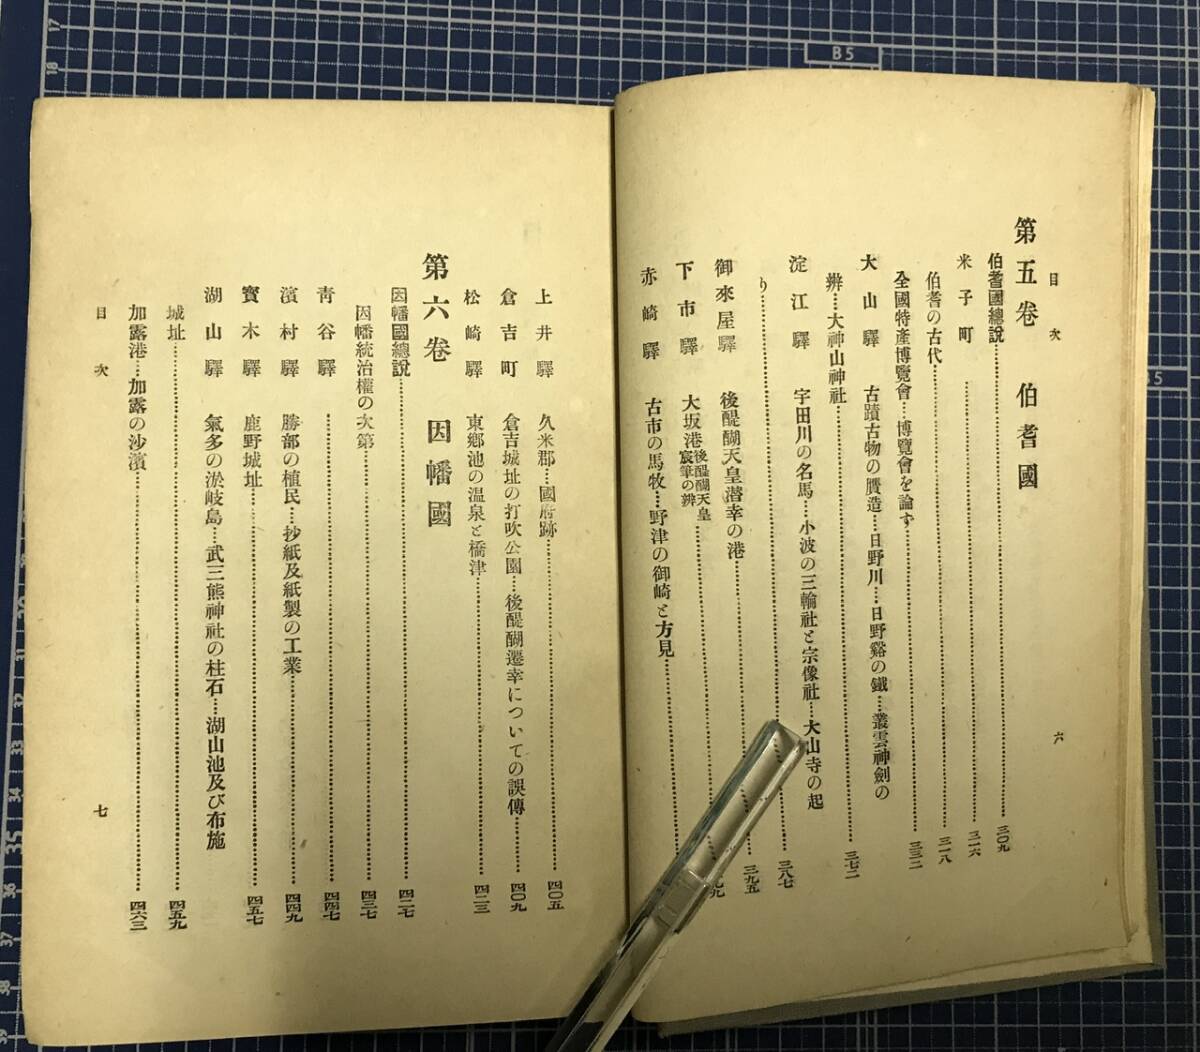 目次
六
第五卷 伯耆國
伯耆國總說………三〇九
米子町………三一六
伯耆の古代………三一八
全國特產博覽會…博覽會を論ず………三三二
大山驛 古蹟古物の贋造…日野川…日野谿の鐵…叢雲神劍の
辨…大神山神社………三七二
淀江驛 宇田川の名馬…小波の三輪社と宗像社…大山寺の起
り………三八七
御來屋驛 後醍醐天皇潜幸の港………三九五
下市驛 大坂港後醍醐天皇宸筆の辨………
赤崎驛 古市の馬牧…野津の御崎と方見………
上井驛 久米郡…國府跡………四〇五
倉吉町 倉吉城址の打吹公園…後醍醐遷幸についての誤傳………四〇九
松崎驛 東鄉池の温泉と橋津………四二三
第六卷 因幡國
因幡國總說………四二七
因幡統治權の次第………四三七
靑谷驛………四四七
濱村驛 勝部の植民…抄紙及紙製の工業………四四九
寳木驛 鹿野城址………四五七
湖山驛 氣多の淤岐島…武三熊神社の柱石…湖山池及び布施
城址………四五九
加露港…加露の沙濱………四六三
目次
七
B5